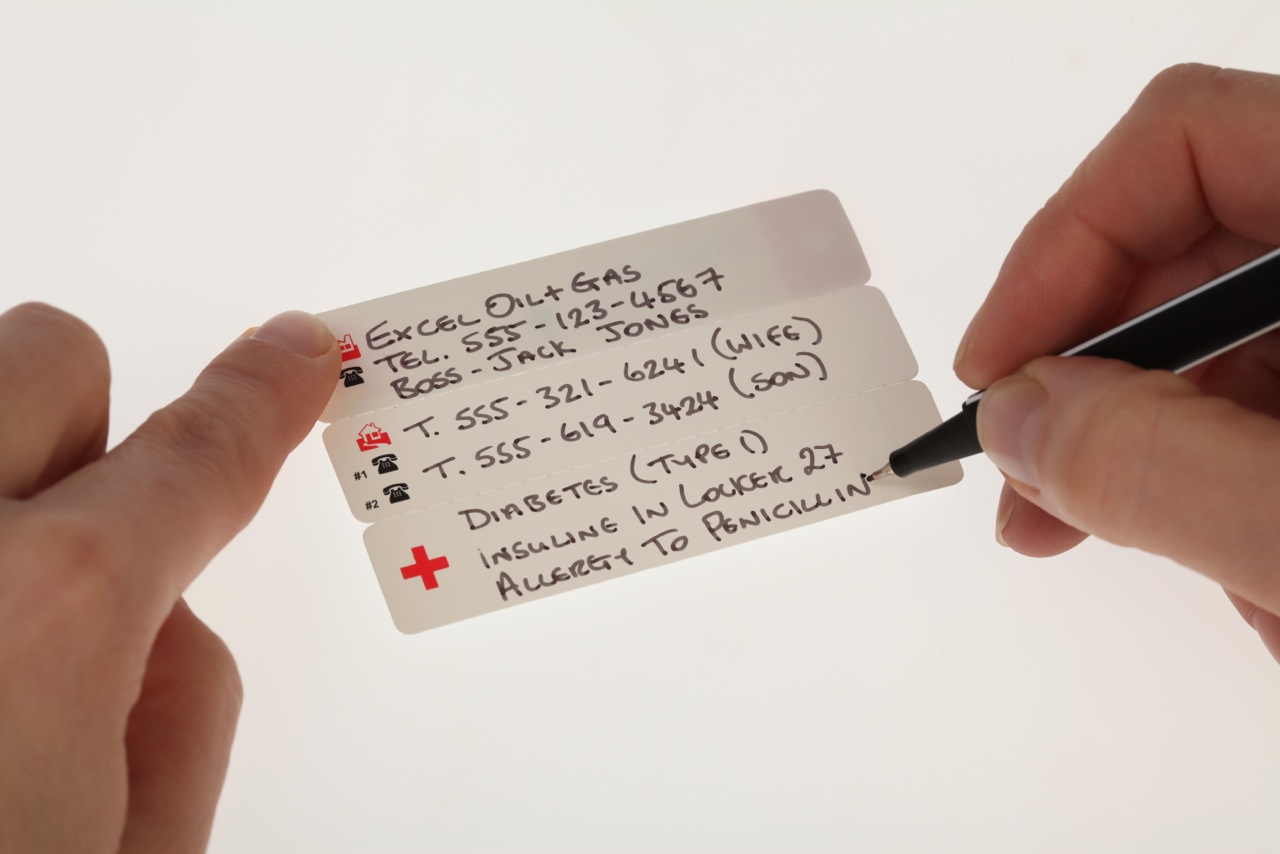 EXCEL OIL+ GAS
TEL. 555-123-4567
BOSS-JACK JONES
T. 555-321-6241 (WIFE)
#1
T. 555-619-3424 (SON)
#2
DIABETES (TYPE 1)
INSULINE IN LOCKER 27
ALLERGY TO PENICILLIN